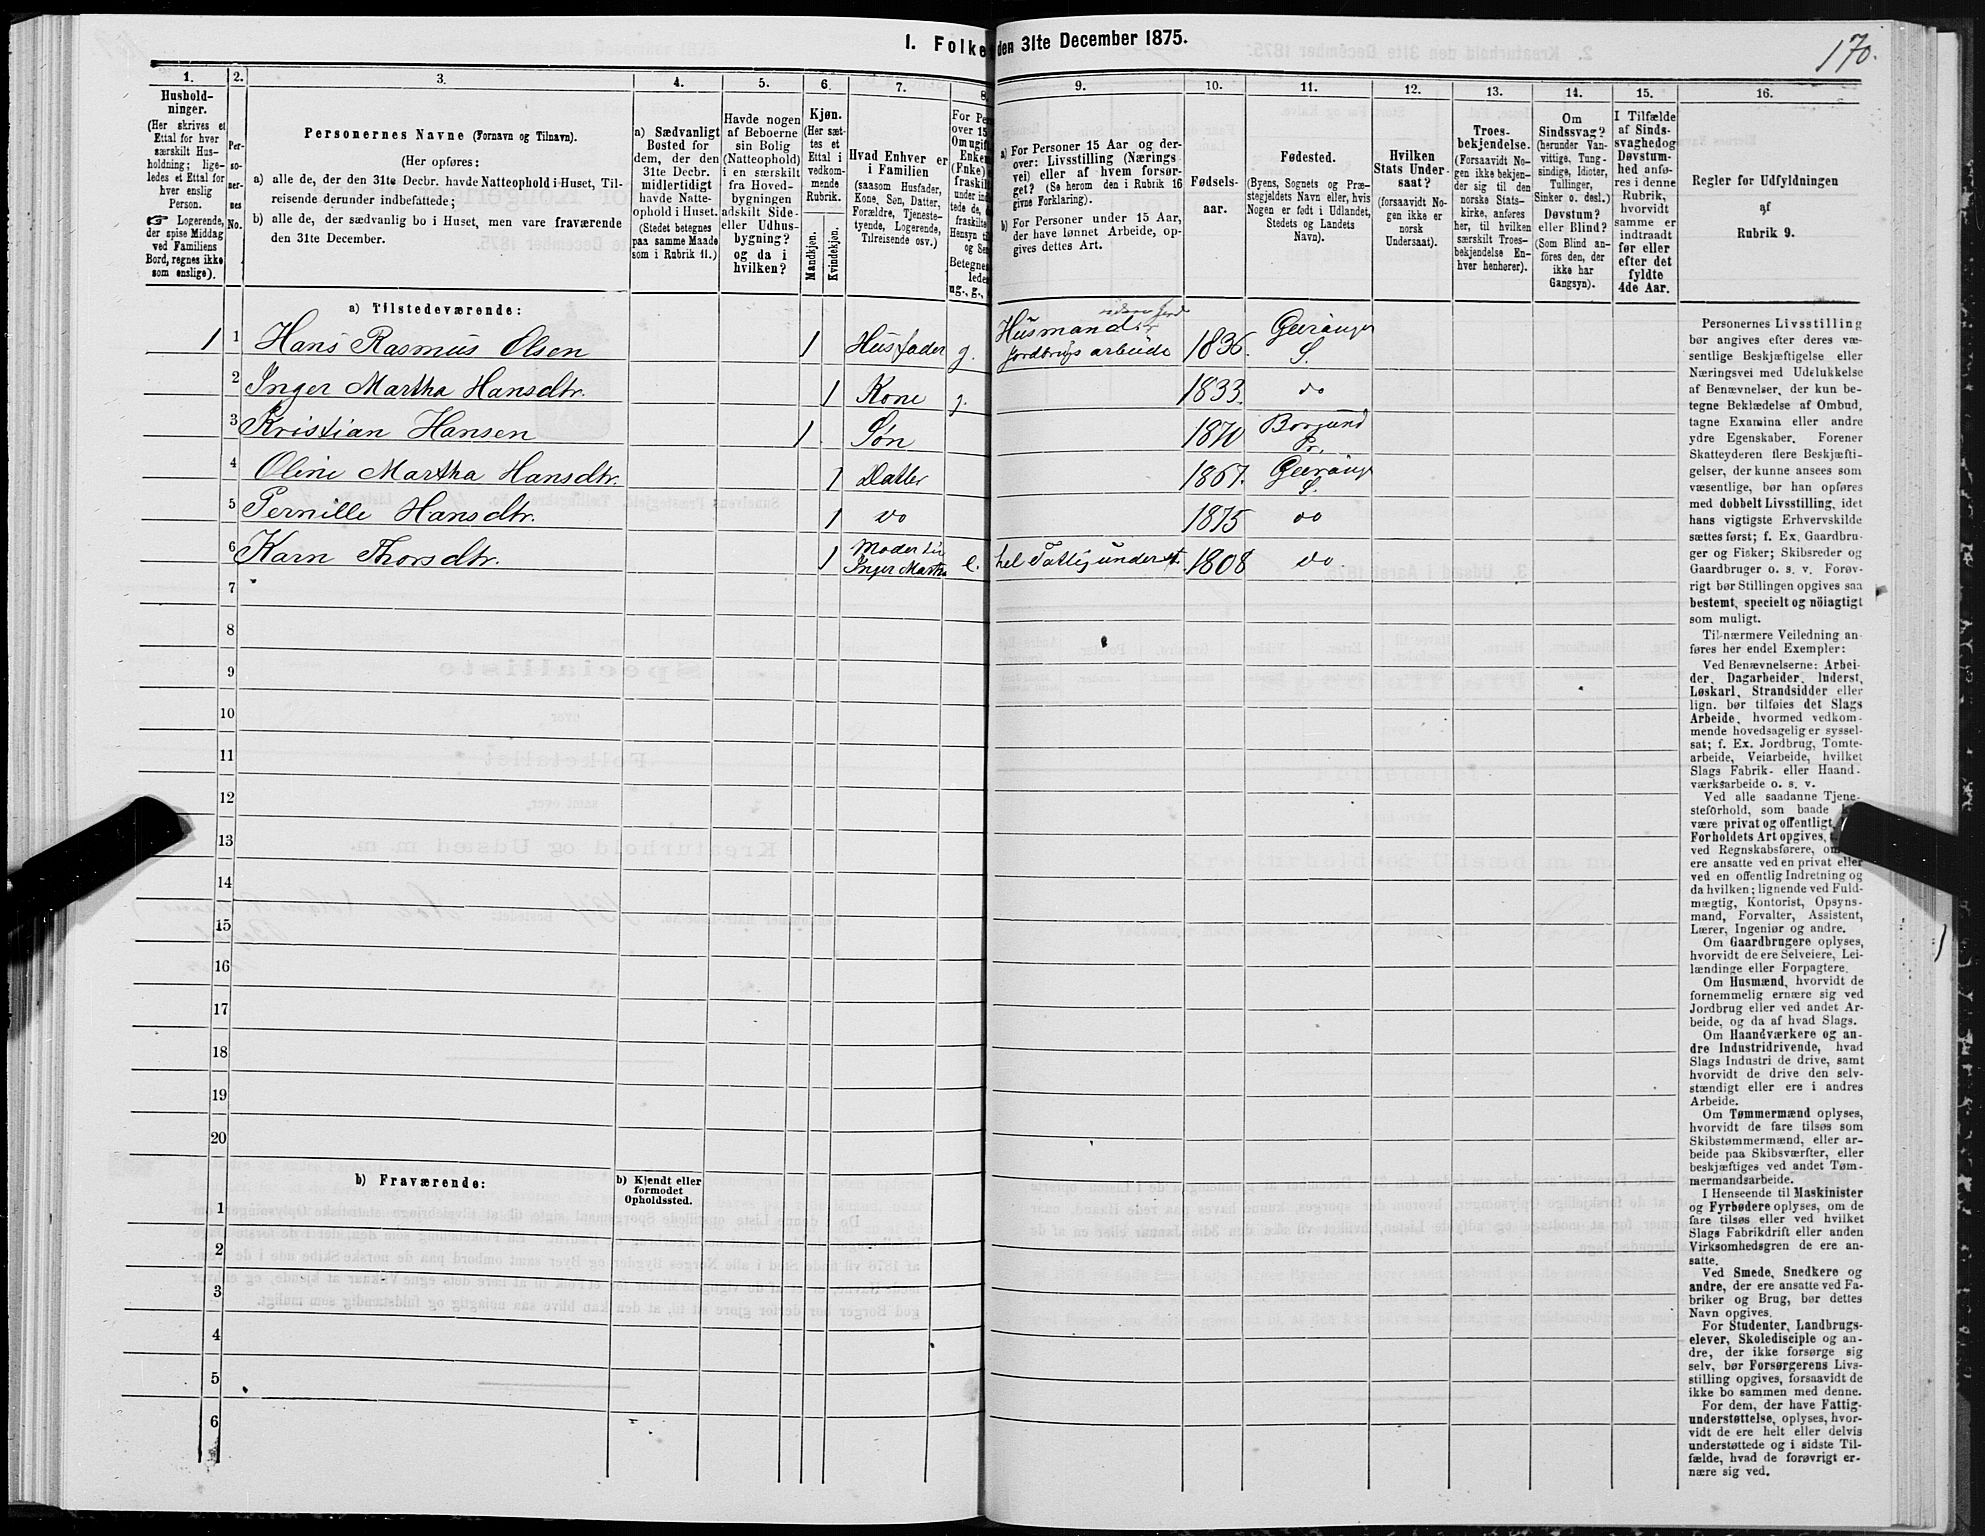 I. Folke den 31te December 1875.
170.
1.
2.
3.
4.
5.
6.
7.
8.
9.
10.
11.
12.
13.
14.
15.
16.
Hushold-
ninger.
(Her skrives et
Ettal for hver
særskilt Hus-
holdning; lige-
ledes et Ettal for
hver enslig
Person.
☞ Logerende,
der spise Middag
ved Familiens
Bord, regnes ikke
som enslige).
Per-
so-
ner-
nes
No.
Personernes Navne (Fornavn og Tilnavn).
(Her opføres:
a) alle de, der den 31te Decbr. havde Natteophold i Huset, Til-
reisende derunder indbefattede;
b) alle de, der sædvanlig bo i Huset, men vare fraværende
den 31te December.
a) Sædvanligt
Bosted for
dem, der den
31te Decbr.
midlertidigt
havde Natte-
ophold i Huset.
(Stedet betegnes
paa samme Maade
som i Rubrik 11.)
Havde nogen
af Beboerne
sin Bolig
(Natteophold)
i en særskilt
fra Hoved-
bygningen
adskilt Side-
eller Udhus-
bygning?
og da i
hvilken?
Kjøn.
(Her sæt-
tes et
Ettal i
vedkom-
mende
Rubrik.
Mandkjøn.
Kvindekjøn.
Hvad Enhver er
i Familien
(saasom Husfader,
Kone, Søn, Datter,
Forældre, Tjeneste-
tyende, Logerende,
Tilreisende osv.)
For Pe
over 15
Om ugift
Enke
fraskilt
under ind
tede de, d
fraskilte
Hensyn ti
og Se
Betegne
lede
ug., g.,
a) For Personer 15 Aar og der-
over: Livsstilling (Nærings
vei) eller af hvem forsør-
get? (Se herom den i Rubrik 16
givne Forklaring).
b) For Personer under 15 Aar,
der have lønnet Arbeide, op-
gives dettes Art.
Fødsels-
aar.
Fødested.
(Byens, Sognets og Præ-
stegjeldets Navn eller, hvis
Nogen er født i Udlandet,
Stedets og Landets
Navn).
Hvilken
Stats Under-
saat?
(forsaavidt No-
gen ikke er
norsk
Undersaat).
Troes-
bekjendelse.
(Forsaavidt No-
gen ikke bekjen-
der sig til den
norske Stats-
kirke, anføres
her, til hvilken
særskilt Troes-
bekjendelse En-
hver henhører).
Om
Sindssvag?
(herunder Van-
vittige, Tung-
sindige, Idioter,
Tullinger,
Sinker o. desl.)
Døvstum?
eller Blind?
(Som Blind an-
føres den, der
ikke har
Gangsyn).
I Tilfælde
af Sinds-
svaghed og
Døvstum-
hed anfø-
res i denne
Rubrik,
hvorvidt
samme er
indtraadt
før eller
efter det
fyldte
4de Aar.
Regler for Udfyldningen
af
Rubrik 9.
a) Tilstedeværende:
1 1 Hans Rasmus Olsen 1 Husfader g. Husmand
Jordbrugsarbeide 1836. Geiranger
S.
2 Inger Martha Hansdtr. 1 Kone g. 1833. do
3 Kristian Hansen 1 Søn 1870 Borgund
Pr.
4 Oline Martha Hansdtr. 1 Datter 1867. Geiranger
S.
5 Pernille Hansdtr. 1 do 1875 do
6 Karn Thorsdtr. 1 Moder til
Inger Martha e. hel Fattigunderst. 1808 do
7
8
9
10
11
12
13
14
15
16
17
18
19
20
b) Fraværende:
b) Kjendt eller
formodet
Opholdssted.
1
2
3
4
5
6
Personernes Livsstilling
bør angives efter deres væ-
sentlige Beskjæftigelse eller
Næringsvei med Udelukkelse
af Benævnelser, der kun be-
tegne Beklædelse af Ombud,
tagne Examina eller andre
ydre Egenskaber. Forener
Skatteyderen flere Beskjæfti-
gelser, der kunne ansees som
væsentlige, bør han opføres
med dobbelt Livsstilling, idet
hans vigtigste Erhvervskilde
sættes først; f. Ex. Gaardbru-
ger og Fisker; Skibsreder og
Gaardbruger o. s. v. Forøv-
rigt bør Stillingen opgives saa
bestemt, specielt og nöiagtigt
som muligt.
Til nærmere Veiledning an-
føres her endel Exempler:
Ved Benævnelserne: Arbei-
der, Dagarbeider, Inderst,
Løskarl, Strandsidder eller
lign. bør tilføies det Slags
Arbeide, hvormed vedkom-
mende hovedsagelig er syssel-
sat; f. Ex. Jordbrug, Tomte-
arbeide, Veiarbeide, hvilket
Slags Fabrik- eller Haand-
værksarbeide o. s. v.
Ved alle saadanne Tjene-
steforhold, som baade
være privat og offentligt,
Forholdets Art opgives,
ved Regnskabsførere, om
ere ansatte ved en privat eller
ved en offentlig Indretning og
da hvilken; lignende ved Fuld-
mægtig, Kontorist, Opsyns-
mand, Forvalter, Assistent,
Lærer, Ingeniør og andre.
Om Gaardbrugere oplyses,
hvorvidt de ere Selveiere, Lei-
lændinge eller Forpagtere.
Om Husmænd, hvorvidt de
fornemmelig ernære sig ved
Jordbrug eller ved andet Ar-
beide, og da af hvad Slags.
Om Haandværkere og an-
dre Industridrivende, hvad
Slags Industri de drive, samt
hvorvidt de drive den selv-
stændigt eller ere i andres
Arbeide.
Om Tømmermænd oplyses,
hvorvidt de fare tilsøs som
Skibstømmermænd, eller ar-
beide paa Skibsværfter, eller
beskjæftiges ved andet Tøm-
mermandsarbeide.
I Henseende til Maskinister
og Fyrbødere oplyses, om de
fare tilsøs eller ved hvilket
Slags Fabrikdrift eller anden
Virksomhedsgren de ere an-
satte.
Ved Smede, Snedkere og
andre, der ere ansatte ved Fa-
briker og Brug, bør dettes
Navn opgives.
For Studenter, Landbrugs-
elever, Skoledisciple og an-
dre, der ikke forsørge sig
selv, bør Forsørgerens Livs-
stilling opgives, forsaavidt de
ikke bo sammen med denne.
For dem, der have Fattig-
understøttelse, oplyses, hvor-
vidt de ere helt eller delvis
understøttede og i sidste Til-
fælde, hvad de forøvrigt er-
nære sig ved.